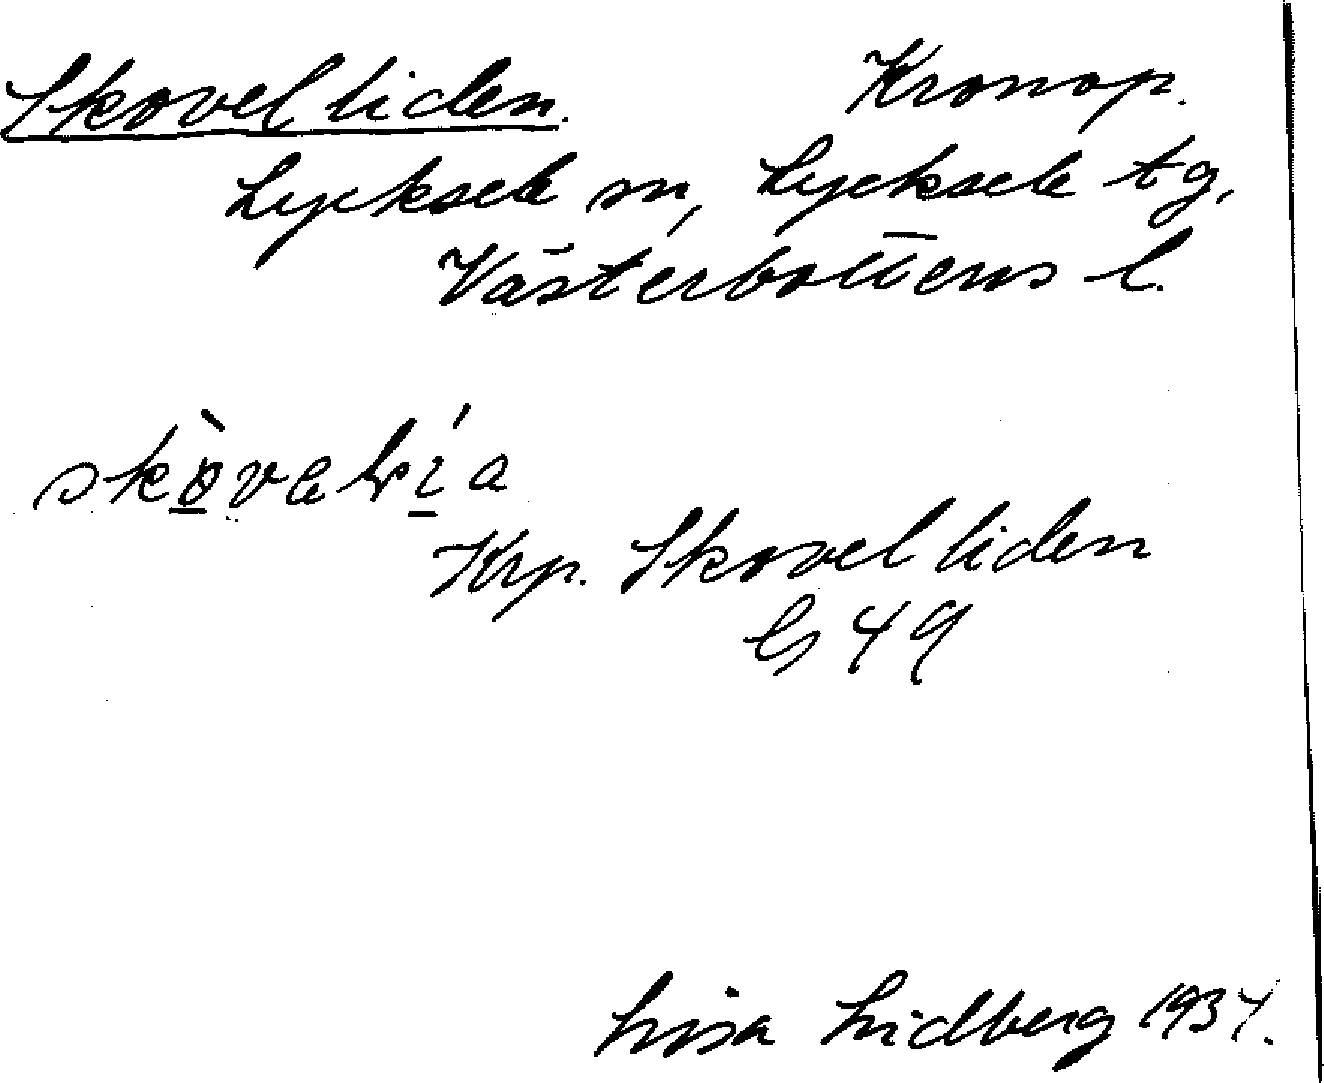 Skovelliden. Kronop.
Lycksele sn, Lycksele tg,
Västerbottens l.
Krp. Skovelliden
49
Lisa Lidberg 1934.